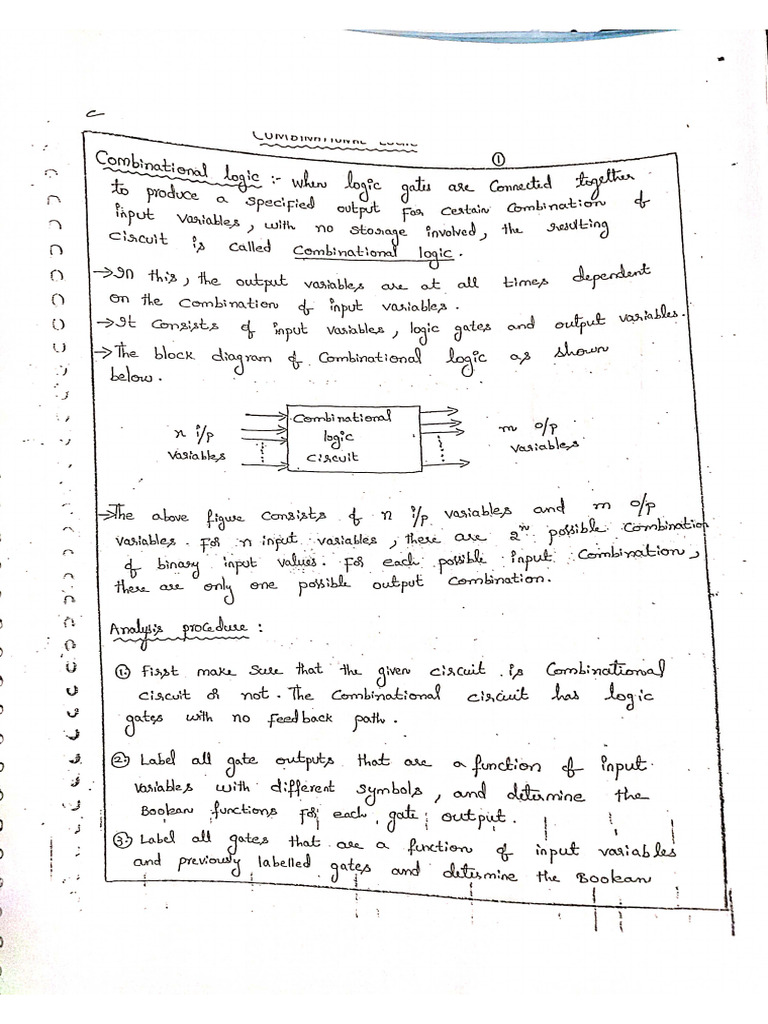 C
COMBINATIONAL LOGIC
①
Combinational logic :- When logic gates are connected together
to produce a specified output for certain combination of
input variables, with no storage involved, the resulting
circuit is called Combinational logic.
→ In this, the output variables are at all times dependent
on the combination of input variables.
→ It consists of input variables, logic gates and output variables.
→ The block diagram of Combinational logic as shown
below.
n i/p
variables
Combinational
logic
circuit
m o/p
variables
→ The above figure consists of n i/p variables and m o/p
variables. For n input variables, there are 2ⁿ possible combination
of binary input values. For each possible input combination,
there are only one possible output combination.
Analysis procedure :
①. First make sure that the given circuit is Combinational
circuit or not. The combinational circuit has logic
gates with no feedback path.
②. Label all gate outputs that are a function of input
variables with different symbols, and determine the
Boolean functions for each gate output.
③. Label all gates that are a function of input variables
and previously labelled gates and determine the Boolean